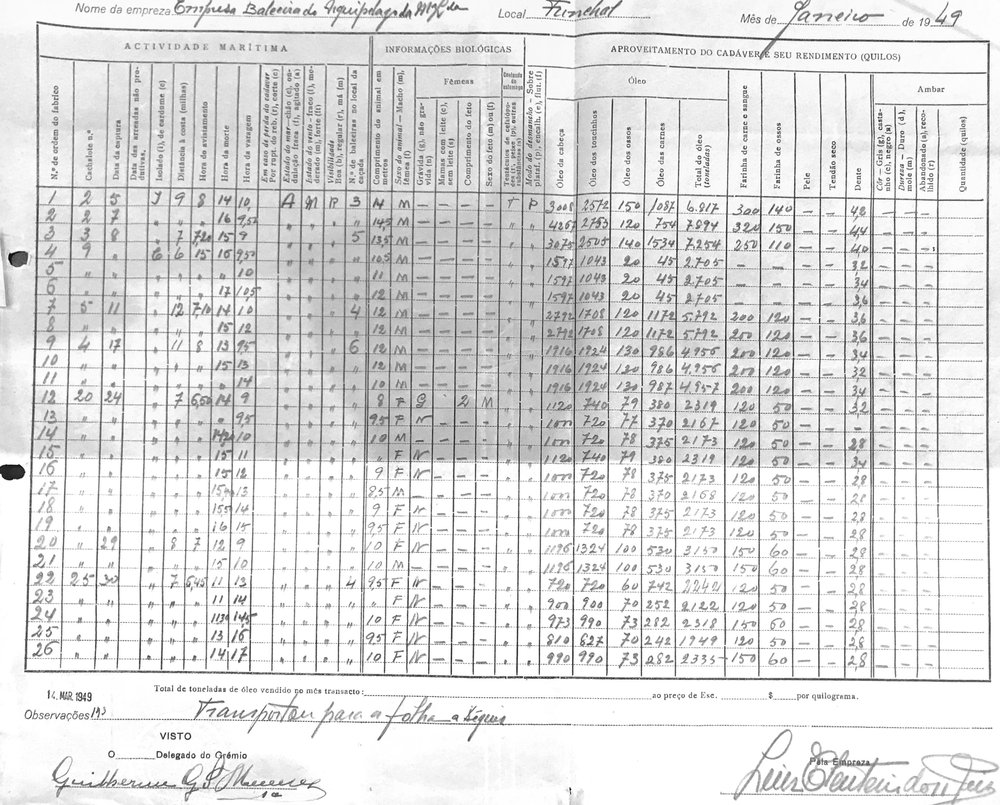 Nome da empresa Empresa Baleeira do Arquipélago da Mª Lda Local Funchal Mês de Janeiro de 1949
ACTIVIDADE MARÍTIMA INFORMAÇÕES BIOLÓGICAS APROVEITAMENTO DO CADÁVER E SEU RENDIMENTO (QUILOS)
Fêmeas Óleo Ambar
N.º de ordem do fabrico
Cachalote n.º
Data da captura
Data das arreadas não produtivas.
Isolado (i), de cardome (c)
Distância à costa (milhas)
Hora do avistamento
Hora da morte
Hora da varagem
Em caso de perda do cadáver Por rupt. do reb. (r), corte (c)
Estado do mar—chão (c), ondulação fraca (f), agitado (a)
Estado do vento—fraco (f), moderado (m), forte (ft)
Visibilidade Boa (b), regular (r), má (m)
N.º de baleeiras no local da caçada
Comprimento do animal em metros
Sexo do animal—Macho (m), fêmea (f)
Grávida (g), não gravida (n)
Mamas com leite (c), sem leite (s)
Comprimento do feto
Sexo do feto (m) ou (f)
Conteúdo do estômago
Modo do desmancho—Sobre plataf. (p), encalh. (e), flut. (f)
Óleo da cabeça
Óleo dos toucinhos
Óleo dos ossos
Óleo das carnes
Total do óleo (toneladas)
Farinha de carne e sangue
Farinha de ossos
Pele
Tendão seco
Dente
Côr—Gris (g), castanho (c), negro (a)
Dureza—Duro (d), mole (m)
Abandonado (a), recolhido (r)
Quantidade (quilos)
1 2 5 I 9 8 14 10, A M R 3 14 M — — — — T P 3008 2572 150 1087 6.817 300 140 — — 42
2 2 7 " " " 16 9,50 " " " " 14,5 M — — — — " " 4267 2753 120 754 7.894 320 150 — — 44
3 3 8 " 7 7,20 15 9 " " " 5 13,5 M — — — — " " 3075 2505 140 1534 7.254 250 110 — — 40
4 9 " 6 15 16 9,50 " " " " 10,5 M — — — — " " 1597 1043 20 45 2.705 — — — — 3,2
5 " " " " " " 10 " " " " 11 M — — — — " " 1597 1043 20 45 2.705 — — — — 34
6 " " " " " 17 10,5 " " " " 12 M — — — — " " 1597 1043 20 45 2.705 — — — — 36
7 5 11 " 12 7,10 14 10 " " " 4 12 M — — — — " " 2792 1708 120 1172 5.792 200 120 — — 36
8 " " " " " 15 12 " " " " 12 M — — — — " " 2792 1708 120 1172 5.792 200 120 — — 36
9 4 17 " 11 8 13 9,5 " " " 6 12 M — — — — " " 1916 1924 130 986 4.956 200 120 — — 34
10 " " " " " 15 13 " " " " 12 M — — — — " " 1916 1924 130 986 4.956 200 120 — — 32
11 " " " " " " 14 " " " " 10 M — — — — " " 1916 1924 130 987 4.957 200 120 — — 34
12 20 24 " 7 6,50 14 9 " " " " 8 F G — 2 M " " 1120 740 79 380 2319 120 50 — — 32
13 " " " " " " 9,5 " " " " 9,5 F N — — — " " 1000 720 77 370 2167 120 50 — —
14 " " " " " 14,20 10 " " " " 10 M — — — — " " 1000 720 78 375 2173 120 50 — — 28
15 " " " " " 15 11 " " " " " F N — — — " " 1120 740 79 380 2319 120 50 — — 34
16 " " " " " 15 12 " " " " 9 F N — — — " " 1000 720 78 375 2173 120 50 — — 28
17 " " " " " 13 " " " " 8,5 M — — — — " " 1000 720 78 370 2168 120 50 — — 28
18 " " " " " 15,5 14 " " " " 9 F N — — — " " 1000 720 78 375 2173 120 50 — — 2,8
19 " " " " " 16 15 " " " " 9,5 F N — — — " " 1000 720 78 375 2173 120 50 — — 2,8
20 " 29 " 8 7 12 9 " " " " 10 F N — — — " " 1196 1324 100 530 3150 150 60 — — 2,8
21 " " " " " 15 10 " " " " 10 M — — — — " " 1196 1324 100 530 3150 150 60 — — 2,8
22 25 30 " 7 6,45 11 13 " " " 4 9,5 F N — — — " " 720 720 60 742 2242 120 50 — — 2,8
23 " " " " " 11 14 " " " " " F N — — — " " 900 900 70 252 2122 120 50 — — 2,8
24 " " " " " 11,30 14,5 " " " " 10 F N — — — " " 973 990 73 282 2318 150 60 — — 2,8
25 " " " " " 13 16 " " " " 9,5 F N — — — " " 810 827 70 242 1949 120 50 — — 2,8
26 " " " " " 14 17 " " " " 10 F N — — — " " 990 990 73 282 2335 150 60 — — 2,8
14 MAR. 1949 Total de toneladas de óleo vendido no mês transacto: ao preço de Esc. $ por quilograma.
Observações Transportou para a folha a seguir
VISTO
O Delegado do Grémio
Pela Empresa